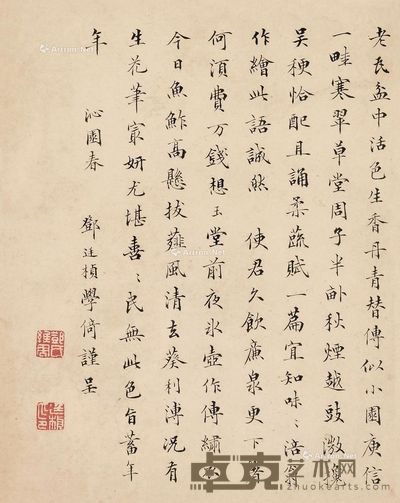 老瓦盆中活色生香丹青替傳似小園庾信
一畦寒翠草堂周子半畝秋煙越豉激攙
吳稉恰配且誦柔蔬賦一篇宜知味〻涪翁
作繪此語誠然　使君久飲廉泉更下箸
何須費万錢想玉堂前夜氷壺作傳繡
今日魚鮓高懸拔薤風清去葵利溥況有
生花筆寂妍尤堪喜〻民無此色旨蓄年
年
沁園春　鄧廷楨學倚謹呈
AMM 艺术网
Artron.Net